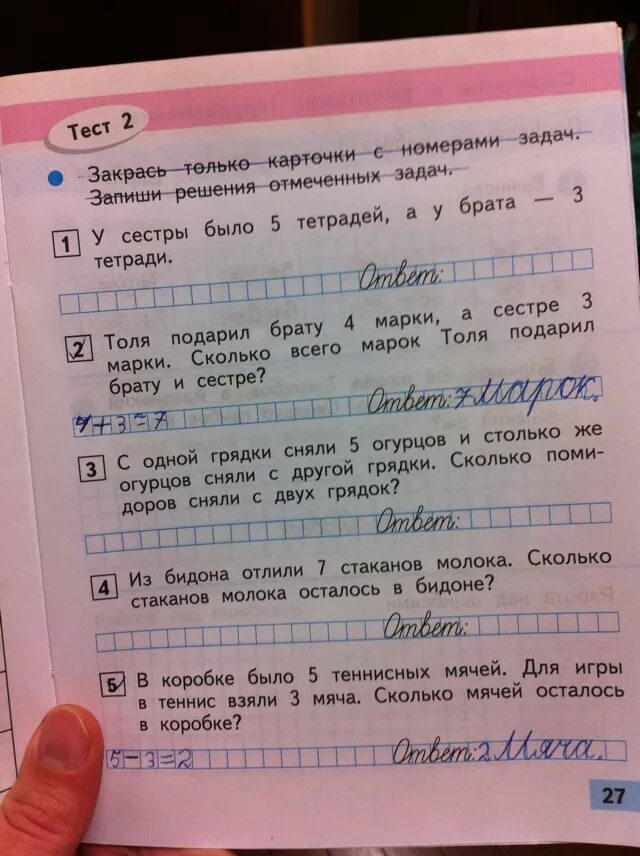 Тест 2
Закрась только карточки с номерами задач.
Запиши решения отмеченных задач.
1 У сестры было 5 тетрадей, а у брата — 3
тетради.
Ответ:
2 Толя подарил брату 4 марки, а сестре 3
марки. Сколько всего марок Толя подарил
брату и сестре?
4+3=7 Ответ: 7 марок.
3 С одной грядки сняли 5 огурцов и столько же
огурцов сняли с другой грядки. Сколько поми-
доров сняли с двух грядок?
Ответ:
4 Из бидона отлили 7 стаканов молока. Сколько
стаканов молока осталось в бидоне?
Ответ:
5 В коробке было 5 теннисных мячей. Для игры
в теннис взяли 3 мяча. Сколько мячей осталось
в коробке?
5-3=2 Ответ: 2 мяча.
27